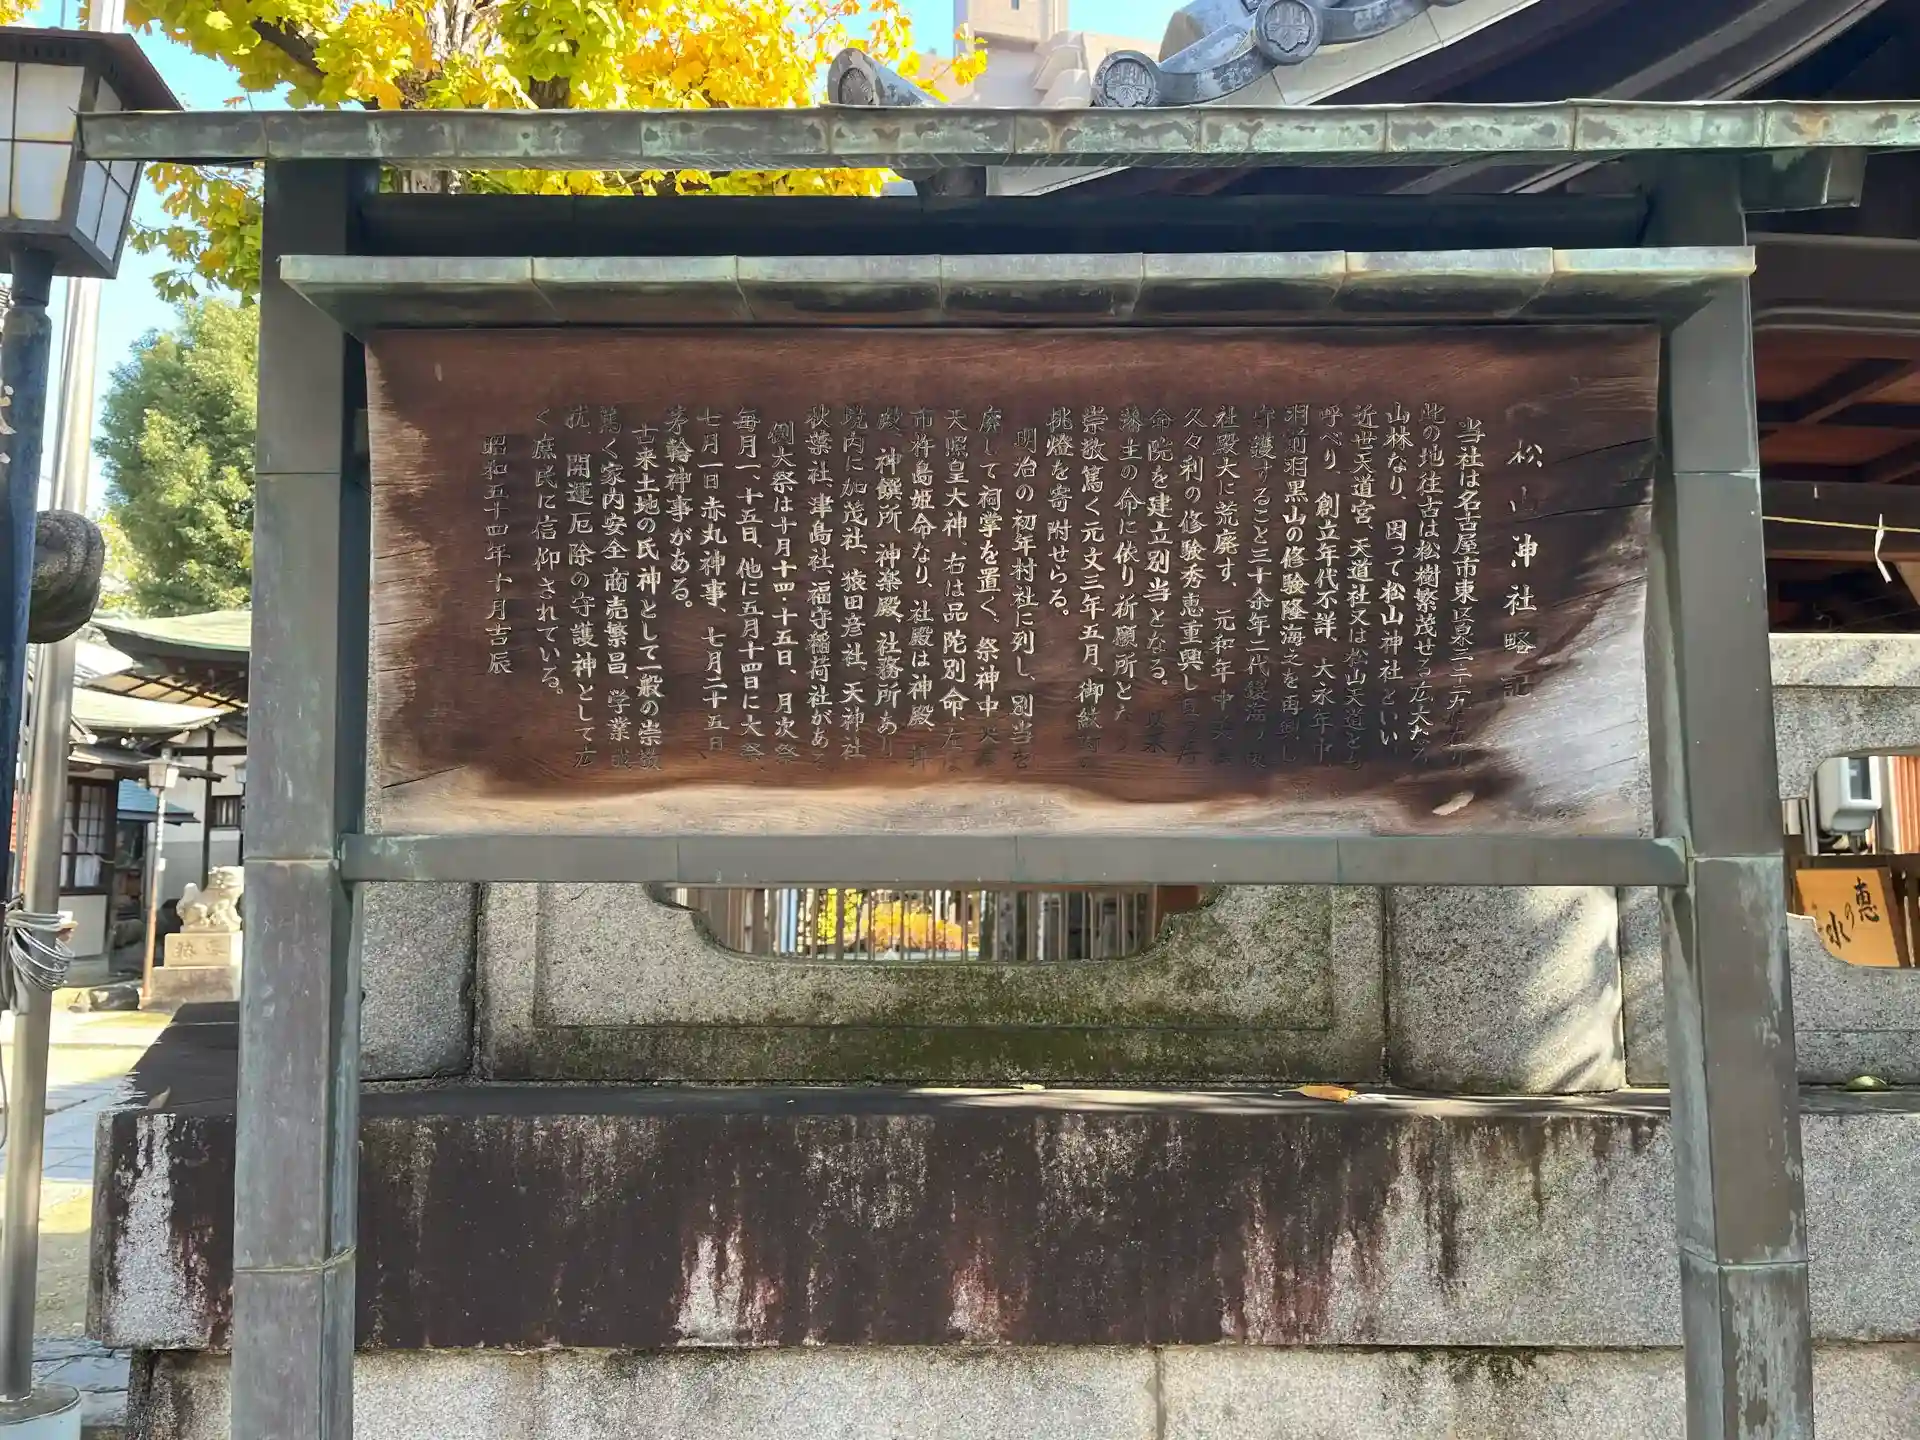 松山神社略記
当社は名古屋市東区泉
此の地往古は松樹繁茂せる広大なる
山林なり、因って松山神社といい
近世天道宮、天道社又は松山天道とも
呼べり、創立年代不詳、大永年中
羽前羽黒山の修験隆海之を再興し
守護すること三十余年二代
社殿大に荒廃す、元和年中
久々利の修験秀恵重興し
命院を建立別当となる。
藩主の命に依り祈願所とな
崇敬篤く元文三年五月、御
挑燈を寄附せらる。
明治の初年村社に列し、別当を
廃して祠掌を置く、祭神中央
天照皇大神、右は品陀別命、左は
市杵島姫命なり、社殿は神殿、拝
殿、神饌所、神楽殿、社務所あり
境内に加茂社、猿田彦社、天神社
秋葉社、津島社、福守稲荷社がある
例大祭は十月十四・十五日、月次祭
毎月一、十五日、他に五月十四日に大祭、
七月一日赤丸神事、七月二十五日
茅輪神事がある。
古来土地の氏神として一般の崇敬
篤く家内安全、商売繁昌、学業成
就、開運厄除の守護神として広
く庶民に信仰されている。
昭和五十四年十月吉辰
恵の水